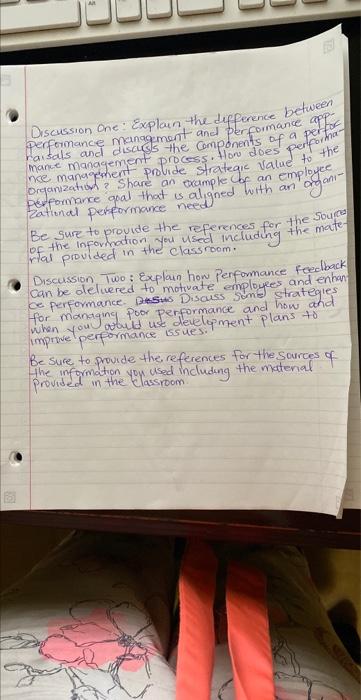 Discussion One: Explain the difference between
performance management and performance app-
raisals and discuss the components of a perfor-
mance management process. How does performa-
nce management provide strategic value to the
organization? Share an example of an employee
performance goal that is aligned with an organi-
zational performance need
Be sure to provide the references for the sources
of the information you used including the mate-
rial provided in the classroom.
Discussion Two: Explain how Performance feedback
can be delivered to motivate employees and enhan-
ce performance. Discuss some strategies
for managing poor performance and how and
when you would use development plans to
improve performance issues.
Be sure to provide the references for the sources of
the information you used including the material
provided in the classroom